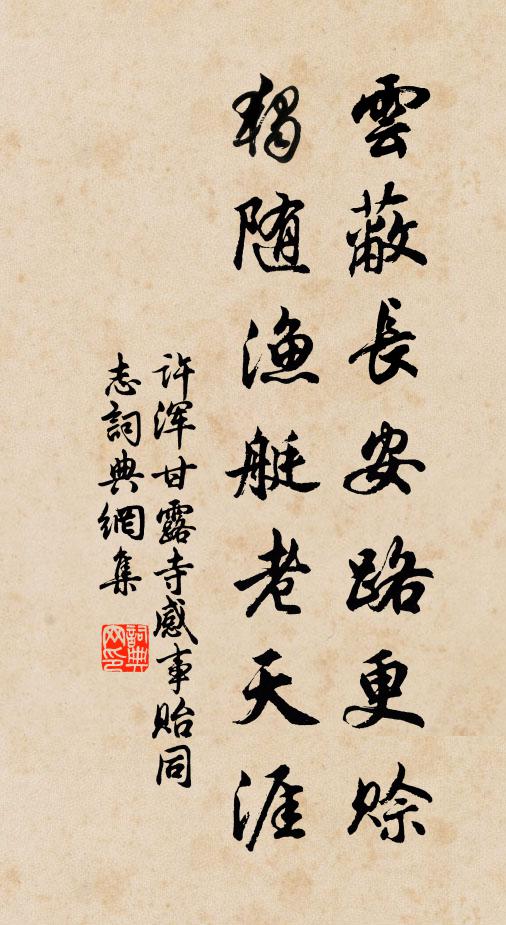 雲蔽長安路更賒
獨随漁艇老天涯
许渾甘露寺感事貽同
志詞典網集
詞典网印